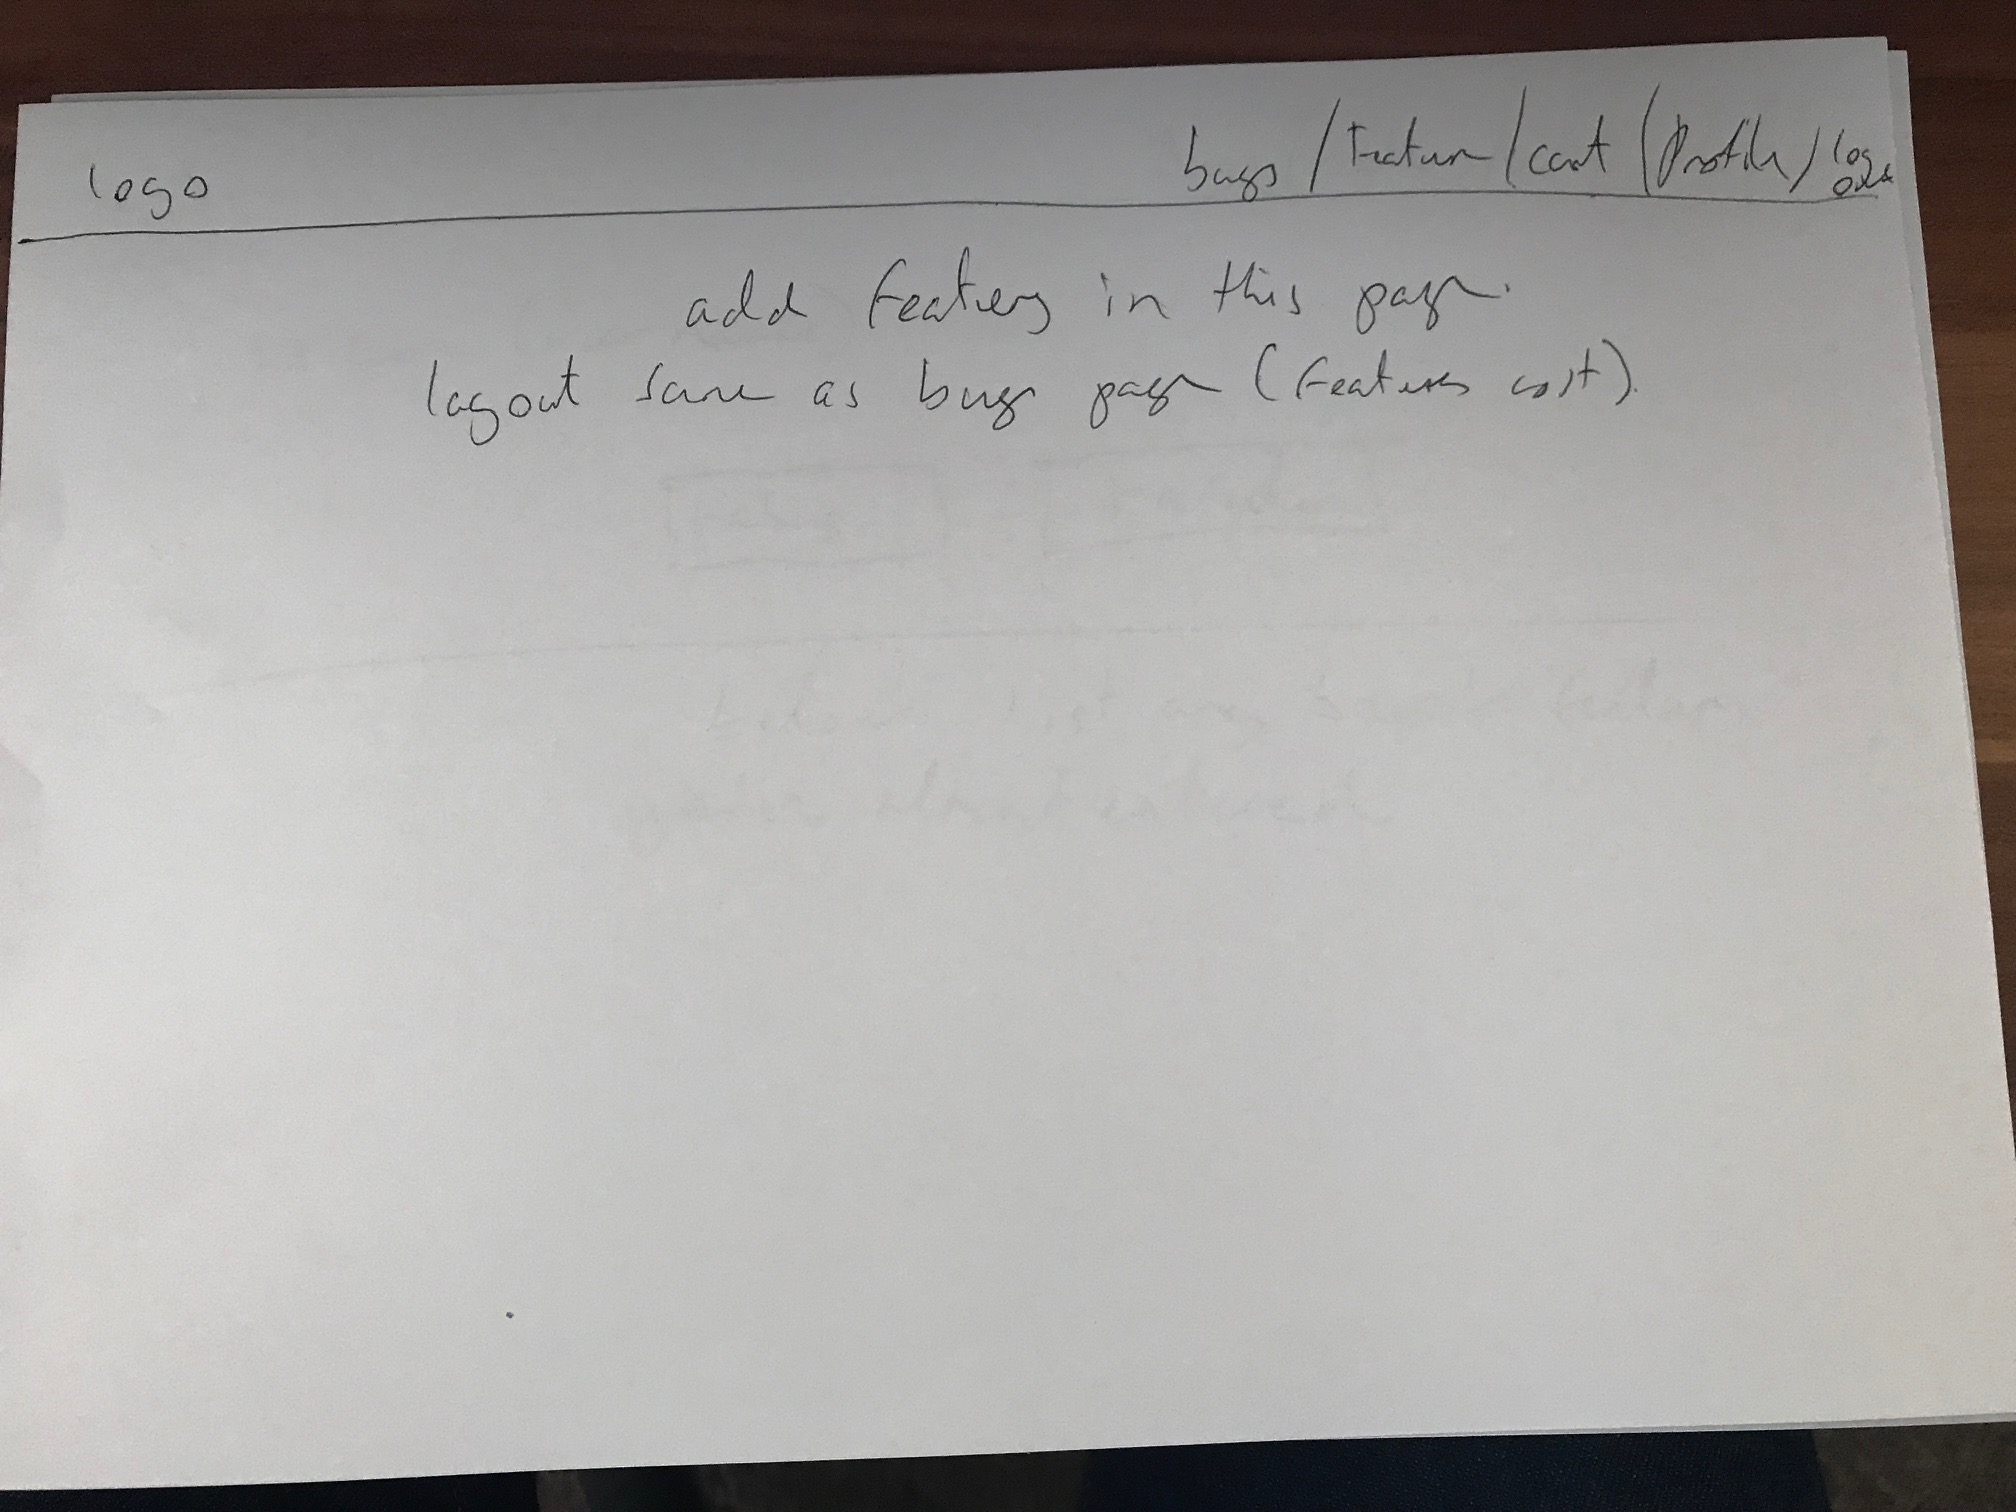 logo bugs / Feature / cart / Profile / log out
add Featiers in this page.
lagout same as bugs page (Features cost).